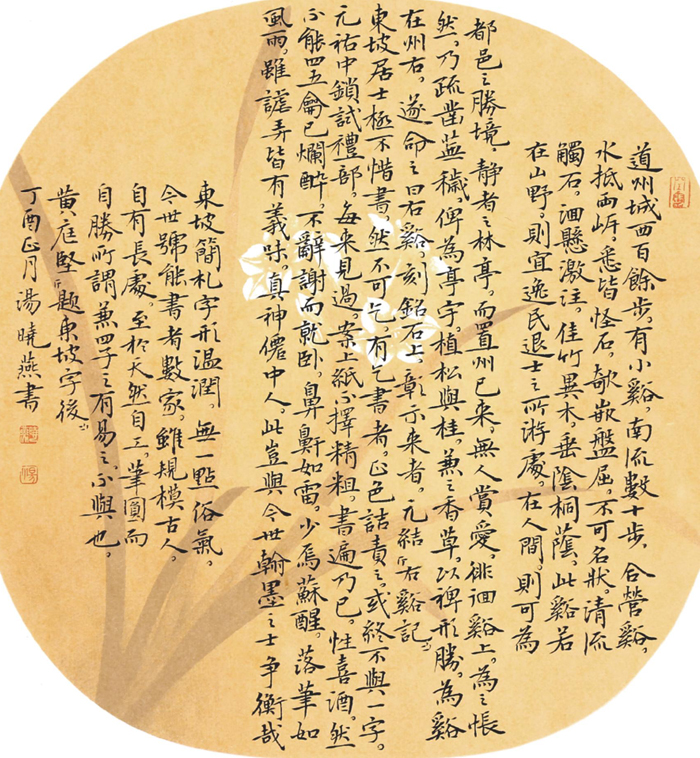 道州城西百餘步。有小谿。南流數十步。合營谿。
水抵兩岸。悉皆怪石。欹嵌盤屈。不可名狀。清流
觸石。洄懸激注。佳竹異木。垂陰桐蔭。此谿若
在山野。則宜逸民退士之所游處。在人間。則可為
都邑之勝境。靜者之林亭。而置州已來。無人賞愛。徘徊谿上。為之悵
然。乃疏鑿蕪穢。俾為亭宇。植松與桂。兼之香草。以裨形勝。為谿
在州右。遂命之曰右谿。刻銘石上。彰示來者。元結右谿記
東坡居士極不惜書。然不可乞。有乞書者。正色詰責之。或終不與一字。
元祐中鎖試禮部。每來見過。案上紙不擇精粗。書遍乃已。性喜酒。然
不能四五龠已爛醉。不辭謝而就臥。鼻鼾如雷。少焉蘇醒。落筆如
風雨。雖謔弄皆有義味。真神僊中人。此豈與今世翰墨之士爭衡哉
東坡簡札字形溫潤。無一點俗氣。
今世號能書者數家。雖規模古人。
自有長處。至於天然自工。筆圓而
自勝所謂兼四子之有易之不與也。
黃庭堅題東坡字後
丁酉正月湯曉燕書